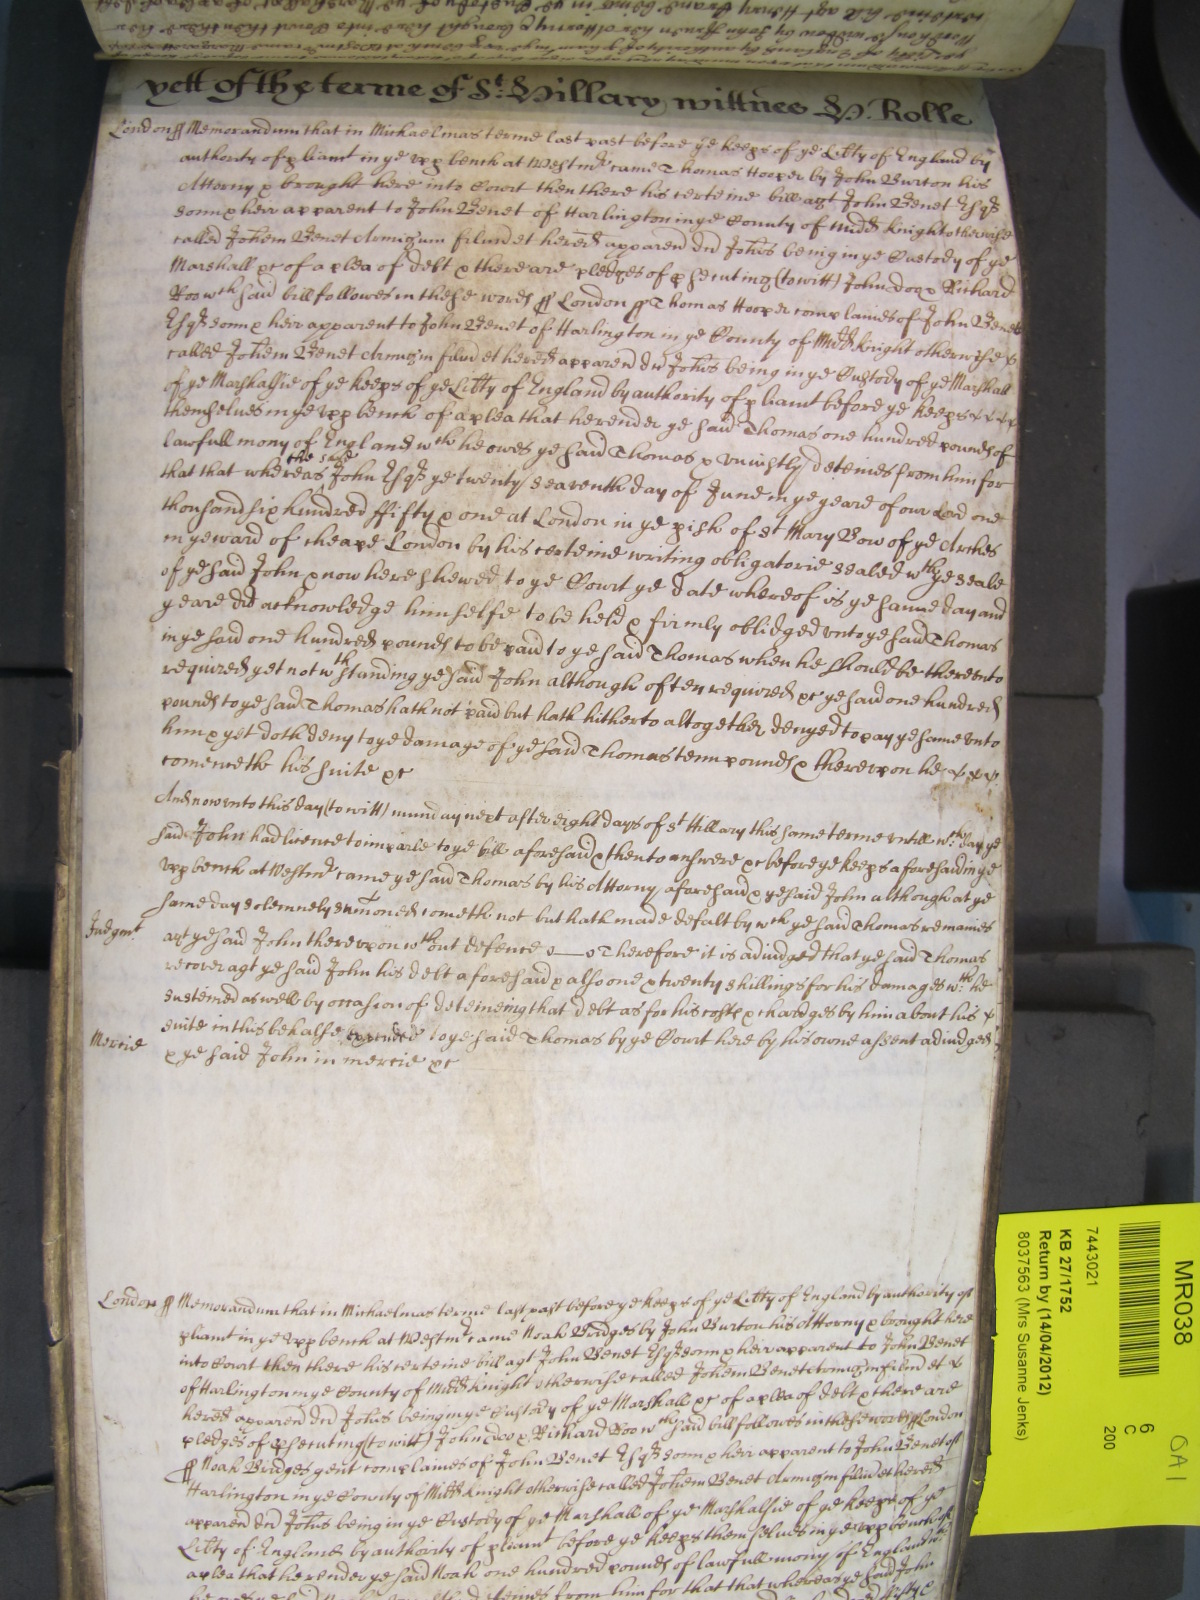 yett of the terme of St. Hillary wittnes H. Rolle
London ss Memorandum that in Michaelmas terme last past before ye keeps of ye Libty of England by
authority of pliamt in ye upp bench at Westmr came Thomas Hooper by John Burton his
Attorny & brought here into Court then there his certeine bill agt John Benet Esqr
sonn & heir apparent to John Benet of Harlington in ye County of Midd knight otherwise
called Johem Benet Armigum filiu et hered apparen dci Johis being in ye Custody of ye
Marshall &c of a plea of debt & there are pledges of psecuting (to witt) John doo & Richard
Roo wch said bill followes in these words ss London ss Thomas Hooper complaines of John Benet
Esqr sonn & heir apparent to John Benet of Harlington in ye County of Midd knight otherwise x
called Johem Benet Armigm filiu et hered apparen dci Johis being in ye Custody of ye Marshall
of ye Marshalsie of ye keeps of ye Libty of England by authority of pliamt before ye keeps x x x x
themselues in ye upp bench of a plea that he render ye said Thomas one hundred pounds of
lawfull mony of England wch he owes ye said Thomas & uniustly deteines from him for
that that whereas the said John Esqr ye twenty seaventh day of June in ye yeare of our Lord one
thousand six hundred ffifty & one at London in ye pish of St Mary Bow of ye Arches
in ye ward of cheape London by his certeine writing obligatorie sealed wth ye seale
of ye said John & now here shewed to ye Court ye date whereof is ye same day and
yeare did acknowledge himselfe to be held & firmly oblidged unto ye said Thomas
in ye said one hundred pounds to be paid to ye said Thomas when he should be thereunto
required yet notwthstanding ye said John although often required &c ye said one hundred
pounds to ye said Thomas hath not paid but hath hitherto altogether denyed to pay ye same unto
him & yet doth deny to ye damage of ye said Thomas tenn pounds & thereupon he x x x
comenceth his suite &c
And now unto this day (to witt) munday next after eight days of St Hillary this same terme untill wch day ye
said John had licence to imparle to ye bill aforesaid & then to answere &c before ye keeps aforesaid in ye
upp bench at Westmr came ye said Thomas by his Attorny aforesaid & ye said John although at ye
same day solemnely sumoned cometh not but hath made defalt by wch ye said Thomas remaines
Judgmt agt ye said John thereupon wthout defence Therefore it is adiudged that ye said Thomas
recover agt ye said John his debt aforesaid & also one & twenty shillings for his damages wch he
susteined as well by occasion of deteineing that debt as for his costs & chardges by him about his x
Mercie suite in this behalfe expended to ye said Thomas by ye Court here by his owne assent adiudged
& ye said John in mercie &c
London ss Memorandum that in Michaelmas terme last past before ye keeps of ye Libty of England by authority of
pliamt in ye upp bench at Westmr came Noah Bridges by John Burton his Attorny & brought here
into Court then there his certeine bill agt John Benet Esqr sonn & heir apparent to John Benet
of Harlington in ye County of Midd knight otherwise called Johem Benet Armigm filiu et x
hered apparen dci Johis being in ye Custody of ye Marshall &c of a plea of debt & there are
pledges of psecuting (to witt) John doo & Richard Roo wch said bill followes in these words ss London
ss Noah Bridges gent complaines of John Benet Esqr sonn & heir apparent to John Benet of
Harlington in ye County of Midd knight otherwise called Johem Benet Armigm filiu et hered
apparen dci Johis being in ye Custody of ye Marshall of ye Marshalsie of ye keeps of ye
Libty of England by authority of pliamt before ye keeps themselues in ye upp bench of
a plea that he render ye said Noah one hundred pounds of lawfull mony of England wch
deteines from him for that that whereas ye said John
MR038
7443021
KB 27/1752
Return by (14/04/2012)
8037563 (Mrs Susanne Jenks)
6
C
200
OA1